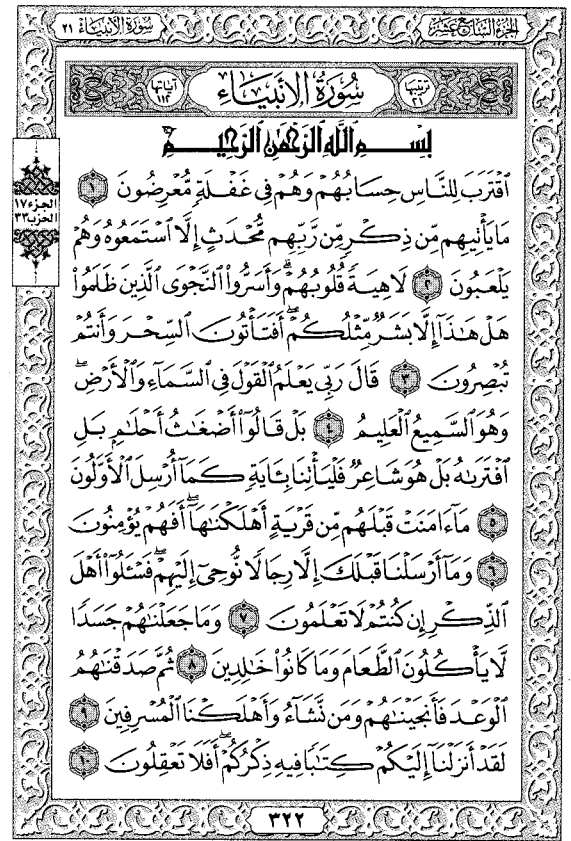 الجزء السابع عشر
سورة الأنبياء ٢١
ترتيبها ٢١
سُورَةُ الأَنْبِيَاءِ
آياتها ١١٢
الجزء ١٧
الحزب ٣٣
بِسْمِ ٱللَّهِ ٱلرَّحْمَٰنِ ٱلرَّحِيمِ
ٱقْتَرَبَ لِلنَّاسِ حِسَابُهُمْ وَهُمْ فِى غَفْلَةٍ مُّعْرِضُونَ ١
مَا يَأْتِيهِم مِّن ذِكْرٍ مِّن رَّبِّهِم مُّحْدَثٍ إِلَّا ٱسْتَمَعُوهُ وَهُمْ
يَلْعَبُونَ ٢ لَاهِيَةً قُلُوبُهُمْ ۗ وَأَسَرُّوا۟ ٱلنَّجْوَى ٱلَّذِينَ ظَلَمُوا۟
هَلْ هَٰذَآ إِلَّا بَشَرٌ مِّثْلُكُمْ ۖ أَفَتَأْتُونَ ٱلسِّحْرَ وَأَنتُمْ
تُبْصِرُونَ ٣ قَالَ رَبِّى يَعْلَمُ ٱلْقَوْلَ فِى ٱلسَّمَآءِ وَٱلْأَرْضِ ۖ
وَهُوَ ٱلسَّمِيعُ ٱلْعَلِيمُ ٤ بَلْ قَالُوٓا۟ أَضْغَٰثُ أَحْلَٰمٍۭ بَلِ
ٱفْتَرَىٰهُ بَلْ هُوَ شَاعِرٌ فَلْيَأْتِنَا بِـَٔايَةٍ كَمَآ أُرْسِلَ ٱلْأَوَّلُونَ
٥ مَآ ءَامَنَتْ قَبْلَهُم مِّن قَرْيَةٍ أَهْلَكْنَٰهَآ ۖ أَفَهُمْ يُؤْمِنُونَ
٦ وَمَآ أَرْسَلْنَا قَبْلَكَ إِلَّا رِجَالًا نُّوحِىٓ إِلَيْهِمْ ۖ فَسْـَٔلُوٓا۟ أَهْلَ
ٱلذِّكْرِ إِن كُنتُمْ لَا تَعْلَمُونَ ٧ وَمَا جَعَلْنَٰهُمْ جَسَدًا
لَّا يَأْكُلُونَ ٱلطَّعَامَ وَمَا كَانُوا۟ خَٰلِدِينَ ٨ ثُمَّ صَدَقْنَٰهُمُ
ٱلْوَعْدَ فَأَنجَيْنَٰهُمْ وَمَن نَّشَآءُ وَأَهْلَكْنَا ٱلْمُسْرِفِينَ ٩
لَقَدْ أَنزَلْنَآ إِلَيْكُمْ كِتَٰبًا فِيهِ ذِكْرُكُمْ ۖ أَفَلَا تَعْقِلُونَ ١٠
٣٢٢